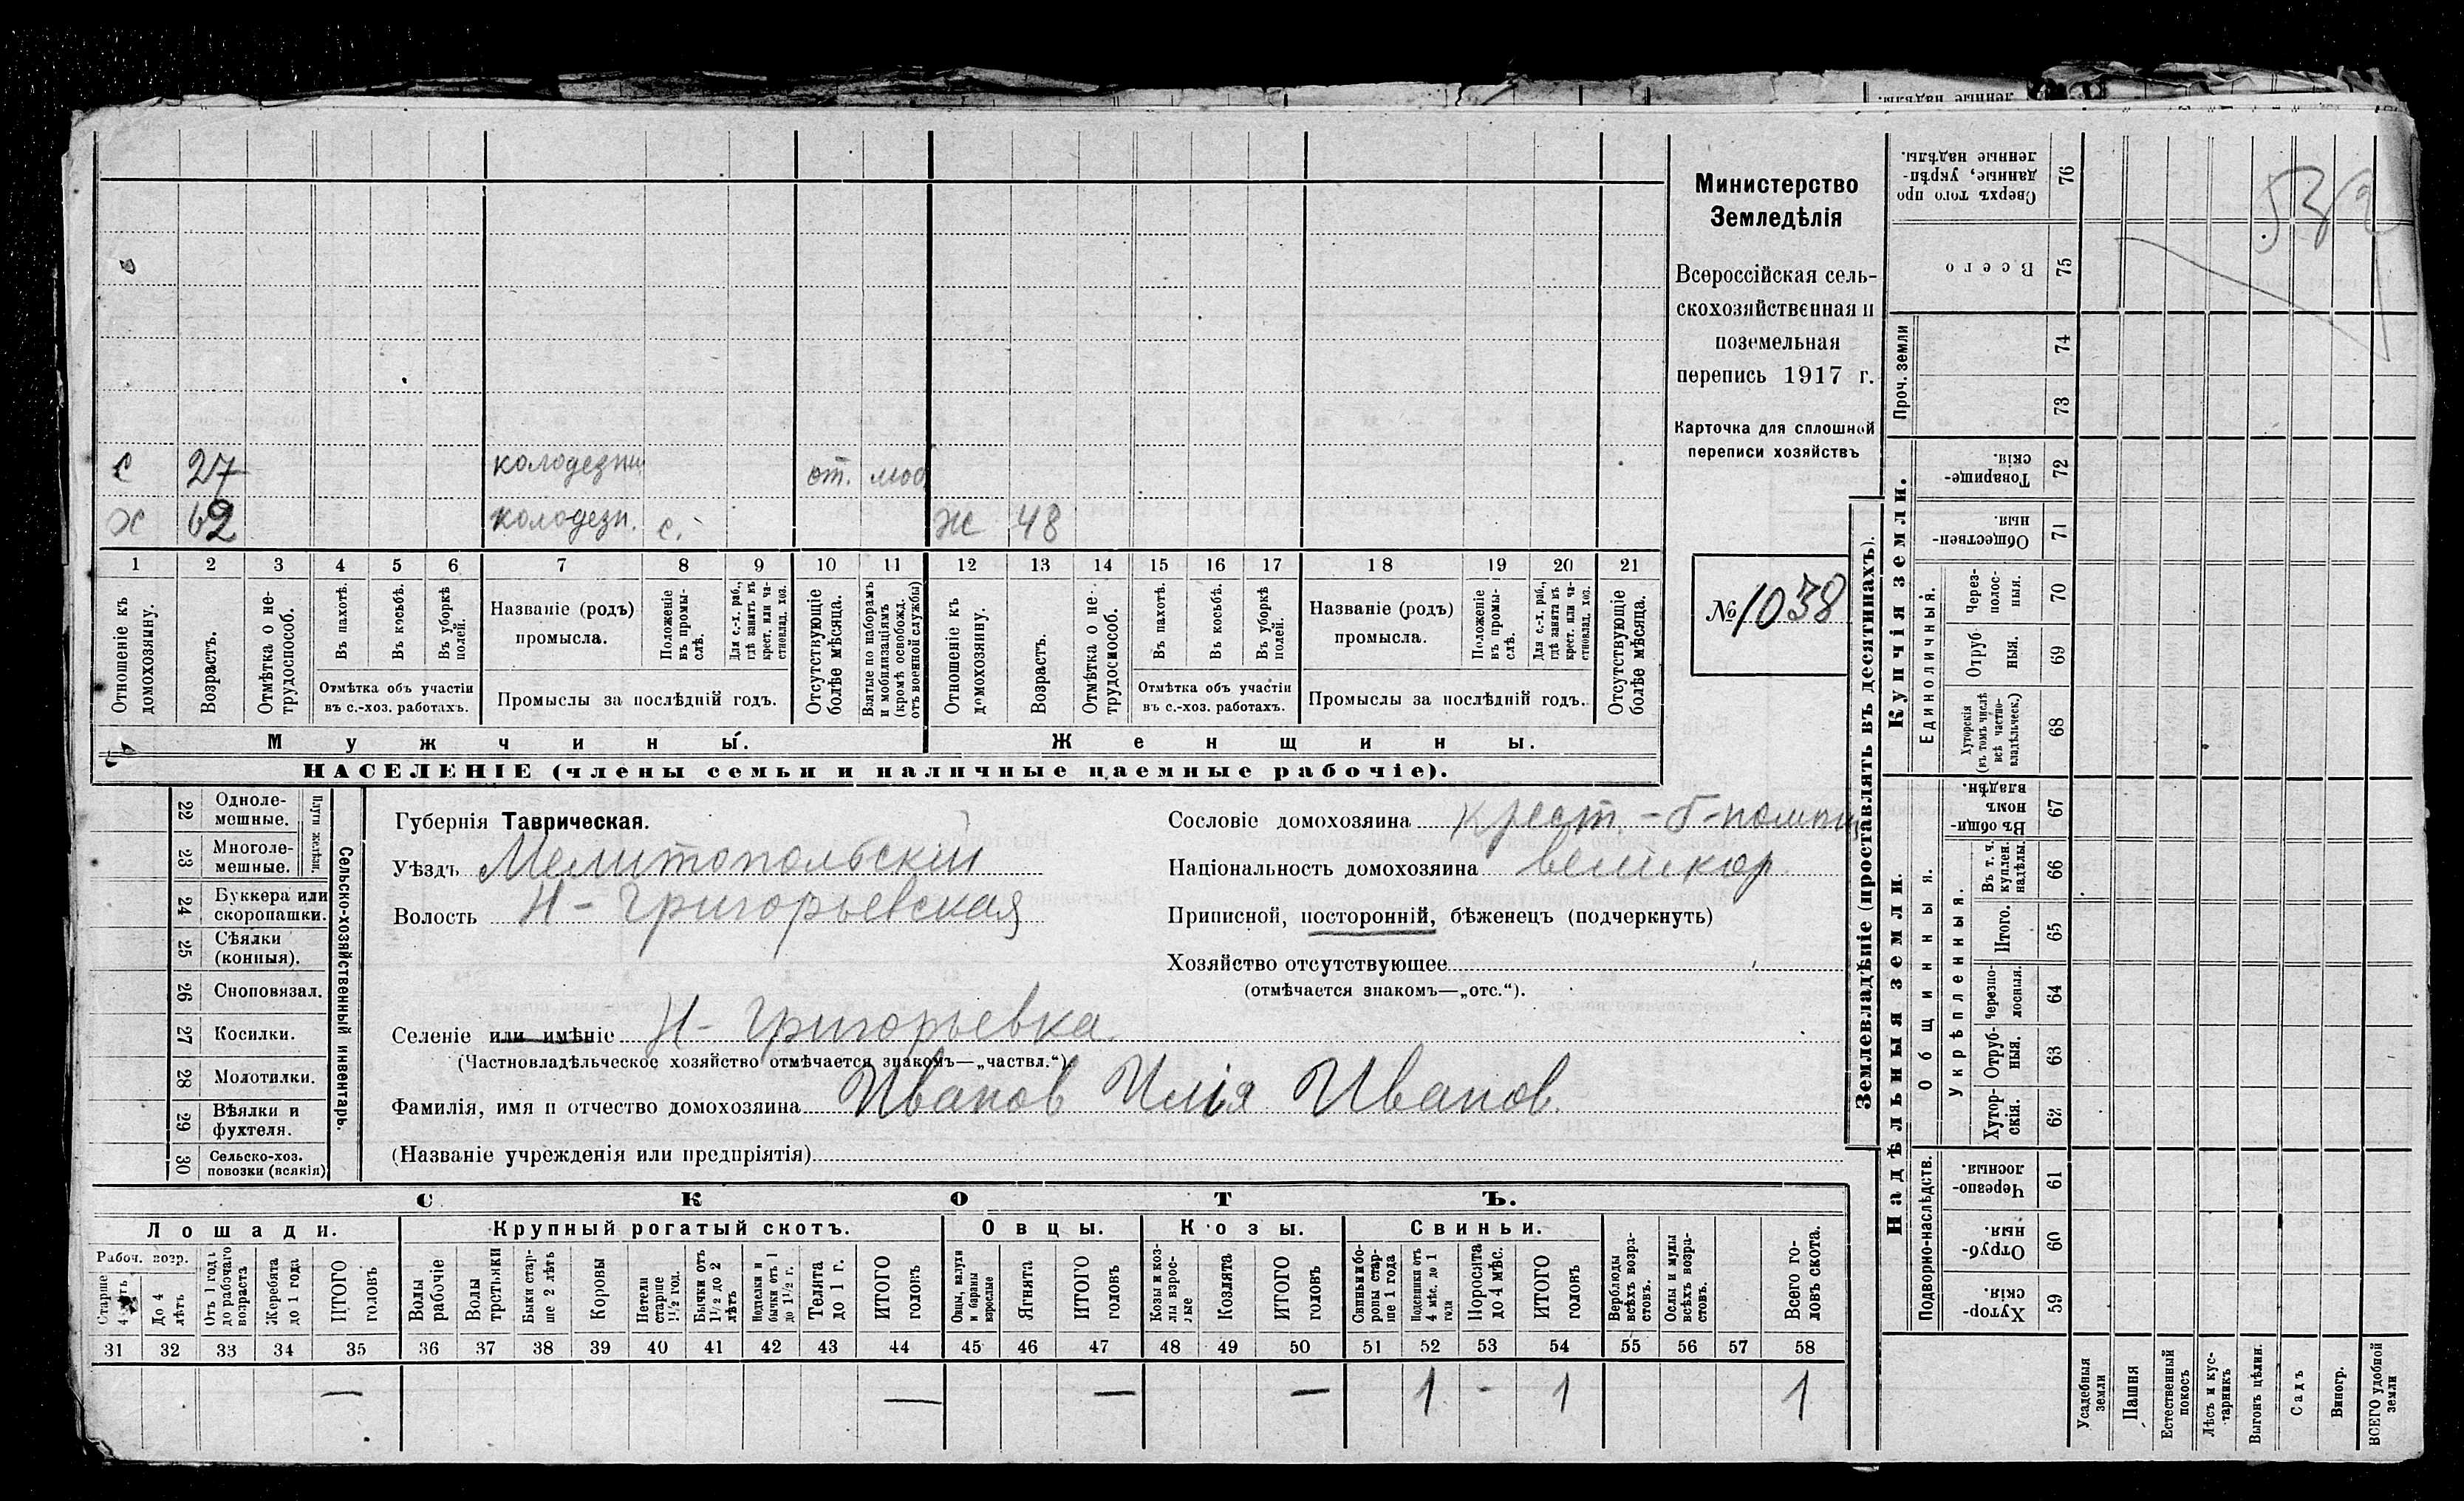 Министерство
Земледѣлія
Всероссійская сель-
скохозяйственная и
поземельная
перепись 1917 г.
Карточка для сплошной
переписи хозяйствъ
№ 1038
с 27 колодезн от. моб
х 62 колодезн. с. ж 48
1 2 3 4 5 6 7 8 9 10 11 12 13 14 15 16 17 18 19 20 21
Отношеніе къ домохозяину.
Возрастъ.
Отмѣтка о не-трудоспособ.
Въ пахотѣ.
Въ косьбѣ.
Въ уборкѣ полей.
Отмѣтка объ участіи
въ с.-хоз. работахъ.
Названіе (родъ)
промысла.
Положеніе въ промы-слѣ.
Для с.-х. раб., гдѣ занятъ въ крест. или ча-стновлад. хоз.
Промыслы за послѣдній годъ.
Отсутствующіе болѣе мѣсяца.
Взятые по наборамъ и мобилизаціямъ (кромѣ освобожд. отъ военной службы)
Отношеніе къ домохозяину.
Возрастъ.
Отмѣтка о не-трудоспособ.
Въ пахотѣ.
Въ косьбѣ.
Въ уборкѣ полей.
Отмѣтка объ участіи
въ с.-хоз. работахъ.
Названіе (родъ)
промысла.
Положеніе въ промы-слѣ.
Для с.-х. раб., гдѣ занята въ крест. или ча-стновлад. хоз.
Промыслы за послѣдній годъ.
Отсутствующіе болѣе мѣсяца.
Мужчины. Женщины.
НАСЕЛЕНІЕ (члены семьи и наличные наемные рабочіе).
Сельско-хозяйственный инвентарь.
Плуги желѣзн.
22 Одноле-мешные.
23 Многоле-мешные.
24 Буккера или скоропашки.
25 Сѣялки (конныя).
26 Сноповязал.
27 Косилки.
28 Молотилки.
29 Вѣялки и фухтеля.
30 Сельско-хоз. повозки (всякія)
Губернія Таврическая.
Уѣздъ Мелитопольскій
Волость Н-Григорьевская
Селеніе или имѣніе Н-Григорьевка
(Частновладѣльческое хозяйство отмѣчается знакомъ—„частвл.“)
Фамилія, имя и отчество домохозяина Иванов Илія Иванов.
(Названіе учрежденія или предпріятія)
Сословіе домохозяина крест.
Національность домохозяина великор.
Приписной, посторонній, бѣженецъ (подчеркнуть)
Хозяйство отсутствующее
(отмѣчается знакомъ—„отс.“).
СКОТЪ.
Лошади. Крупный рогатый скотъ. Овцы. Козы. Свиньи.
Рабоч. возр.
Старше 4 лѣтъ
До 4 лѣтъ
Отъ 1 года до рабочаго возраста
Жеребята до 1 года
ИТОГО головъ
Волы рабочіе
Волы третьяки
Быки стар-ше 2 лѣтъ
Коровы
Нетели старше 1½ год.
Бычки отъ 1½ до 2 лѣтъ
Подтелки и бычки отъ 1 до 1½ г.
Телята до 1 г.
ИТОГО головъ
Овцы, валухи и бараны взрослые
Ягнята
ИТОГО головъ
Козы и коз-лы взрос-лые
Козлята
ИТОГО головъ
Свиньи и бо-ровы стар-ше 1 года
Подсвинки отъ 4 мѣс. до 1 года
Поросята до 4 мѣс.
ИТОГО головъ
Верблюды всѣхъ возра-стовъ.
Ослы и мулы всѣхъ возра-стовъ.
Всего го-ловъ скота.
31 32 33 34 35 36 37 38 39 40 41 42 43 44 45 46 47 48 49 50 51 52 53 54 55 56 57 58
— — — — 1 - 1 1
Землевладѣніе (проставлять въ десятинахъ).
Надѣльныя земли.
Купчія земли.
Проч. земли
Подворно-наслѣдств.
Общинныя.
Укрѣпленныя.
Единоличный.
Сверхъ того про данные, укрѣп-ленные надѣлы. 76
Всего 75
74
73
Товарище-скія. 72
Обществен-ныя. 71
Через-полос-ныя. 70
Отруб-ныя. 69
Хуторскія (въ томъ числѣ всѣ частно-владѣльческ.) 68
Въ общи номъ владѣн. 67
Въ т. ч. куплен. надѣлы. 66
Итого. 65
Черезпо-лосныя. 64
Отруб-ныя. 63
Хутор-скія. 62
Черезпо-лосныя. 61
Отруб-ныя. 60
Хутор-скія. 59
Усадебныя земли
Пашня
Естественный покосъ
Лѣсъ и кус-тарникъ
Выгонъ цѣлин.
Садъ
Виногр.
ВСЕГО удобной земли